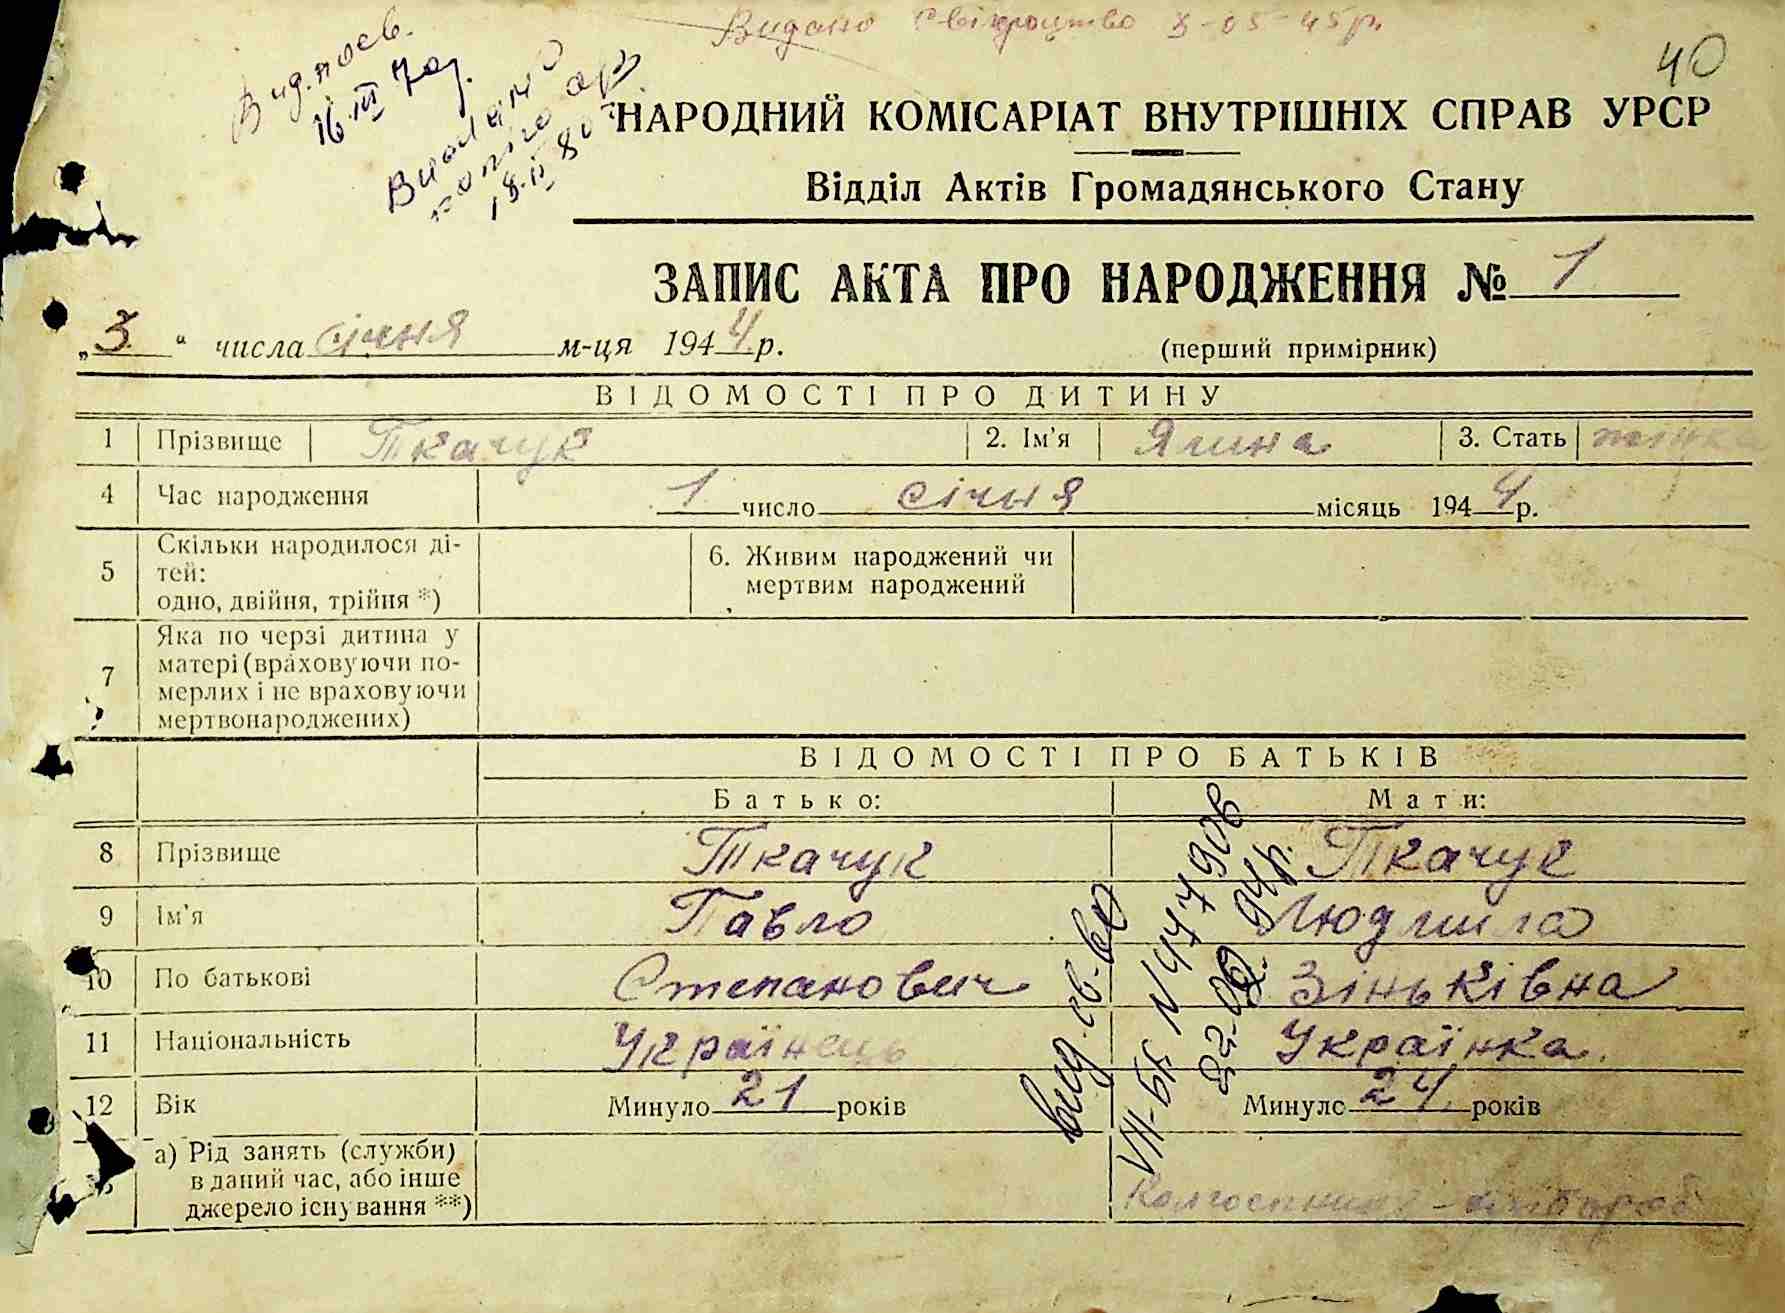 Видано Свідоцтво 3-05-45р.
40
Вид. посв.
16 III 70 г.
Видано
18.II 80 г.
НАРОДНИЙ КОМІСАРІАТ ВНУТРІШНІХ СПРАВ УРСР
Відділ Актів Громадянського Стану
ЗАПИС АКТА ПРО НАРОДЖЕННЯ № 1
„3“ числа січня м-ця 1944 р.
(перший примірник)
ВІДОМОСТІ ПРО ДИТИНУ
1 Прізвище Ткачук 2. Ім'я Янина 3. Стать
4 Час народження 1 число січня місяць 1944 р.
5 Скільки народилося ді-
тей:
одно, двійня, трійня *)
6. Живим народжений чи
мертвим народжений
7 Яка по черзі дитина у
матері (враховуючи по-
мерлих і не враховуючи
мертвонароджених)
ВІДОМОСТІ ПРО БАТЬКІВ
Батько: Мати:
8 Прізвище Ткачук Ткачук
9 Ім'я Павло Людмила
10 По батькові Степанович Зіньківна
11 Національність Українець Українка.
12 Вік Минуло 21 років Минуло 24 років
а) Рід занять (служби)
в даний час, або інше
джерело існування **)
Колгоспниця -
вид. св-во
VIII-БК N 447790